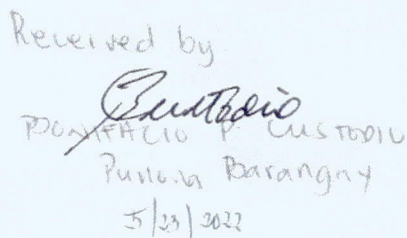 Received by
BCustodio
BONIFACIO P. CUSTODIO
Punong Barangay
5/23/2022